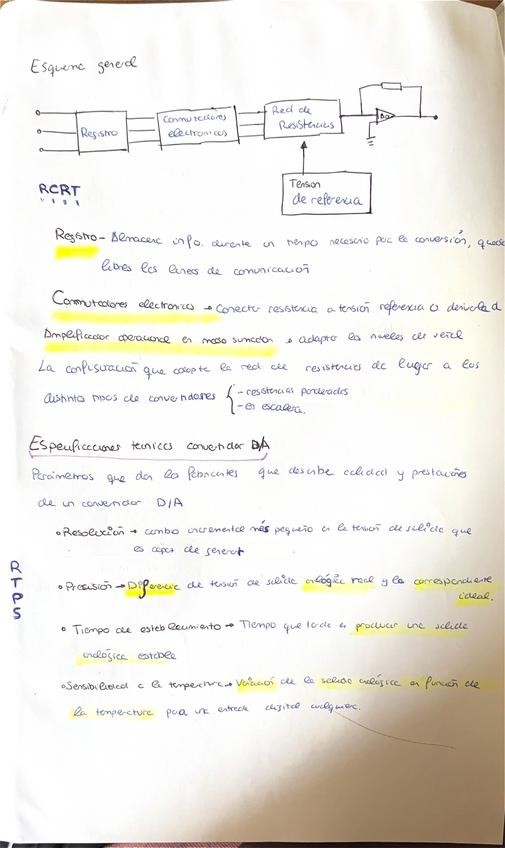 Esquema general
Registro
Conmutadores
electronicos
Red de
Resistencias
Tension
de referencia
RCRT
Registro - Almacena info. durante un tiempo necesario para la conversión, quedan
libres las líneas de comunicación
Conmutadores electronicos → Conecta resistencia a tensión referencia o
Amplificador operacional en modo sumador → adapta los niveles de
La configuración que adopte la red de resistencias da lugar a los
distintos tipos de convertidores { - resistencias ponderadas
- en escalera.
Especificaciones tecnicas convertidor D/A
Parámetros que dan los fabricantes que describe calidad y prestaciones
de un convertidor D/A
• Resolución → cambio incremental más pequeño en la tensión de salida que
es capaz de generar
R
T
P
S
• Precisión → Diferencia de tensión de salida analógica real y la correspondiente
ideal.
• Tiempo de establecimiento → Tiempo que tarda en producir una salida
analógica estable
• Sensibilidad a la temperatura → Variación de la salida analógica en función de
la temperatura para una entrada digital cualquiera.